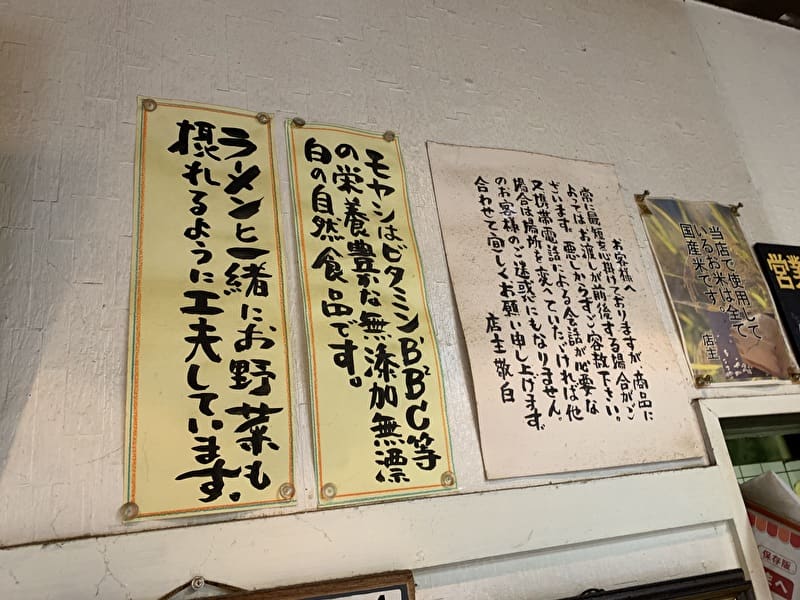 ラーメンと一緒にお野菜も
摂れるように工夫しています。
モヤシはビタミンB¹B²BC等
の栄養豊かな無添加無漂
白の自然食品です。
お客様へ
常に最短を心掛けておりますが商品に
よってはお渡しが前後する場合がご
ざいます。悪しからずご容赦下さい。
又携帯電話による会話が必要な
場合は場所を変えていただければ他
のお客様のご迷惑にもなりません。
合わせて宜しくお願い申し上げます
店主敬白
当店で使用して
いるお米は全て
国産米です。
店主
営業
保存版